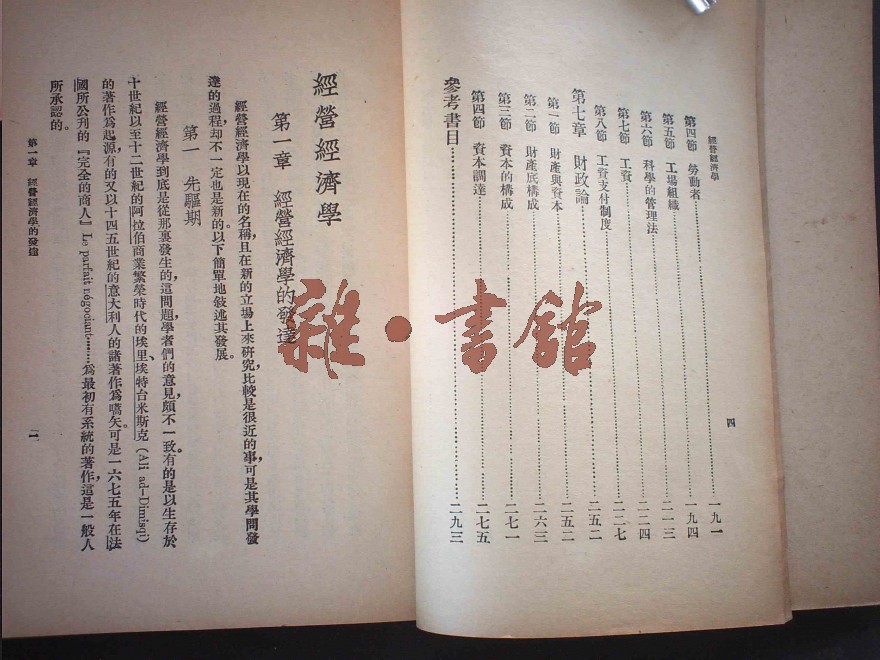 經營經濟學
四
第四節 勞動者……………一九一
第五節 工場組織……………一九四
第六節 科學的管理法……………二一三
第七節 工資……………二二四
第八節 工資支付制度……………二二七
第七章 財政論……………二五二
第一節 財產與資本……………二五二
第二節 財產底構成……………二六三
第三節 資本的構成……………二七一
第四節 資本調達……………二七五
參考書目……………二九三
經營經濟學
第一章 經營經濟學的發達
經營經濟學以現在的名稱,且在新的立場上來研究,比較是很近的事,可是其學問發
達的過程,却不一定也是新的。以下簡單地敍述其發展。
第一 先驅期
經營經濟學到底是從那裏發生的,這問題,學者們的意見,頗不一致。有的是以生存於
十世紀以至十二世紀的阿拉伯商業繁榮時代的埃里、埃特台米斯克(Ali ad-Dimisqi)
的著作爲起源,有的又以十四五世紀的意大利人的諸著作爲嚆矢。可是一六七五年在法
國所公刋的『完全的商人』Le parfait négociant……爲最初有系統的著作,這是一般人
所承認的。
第一章 經營經濟學的發達
雜·書館